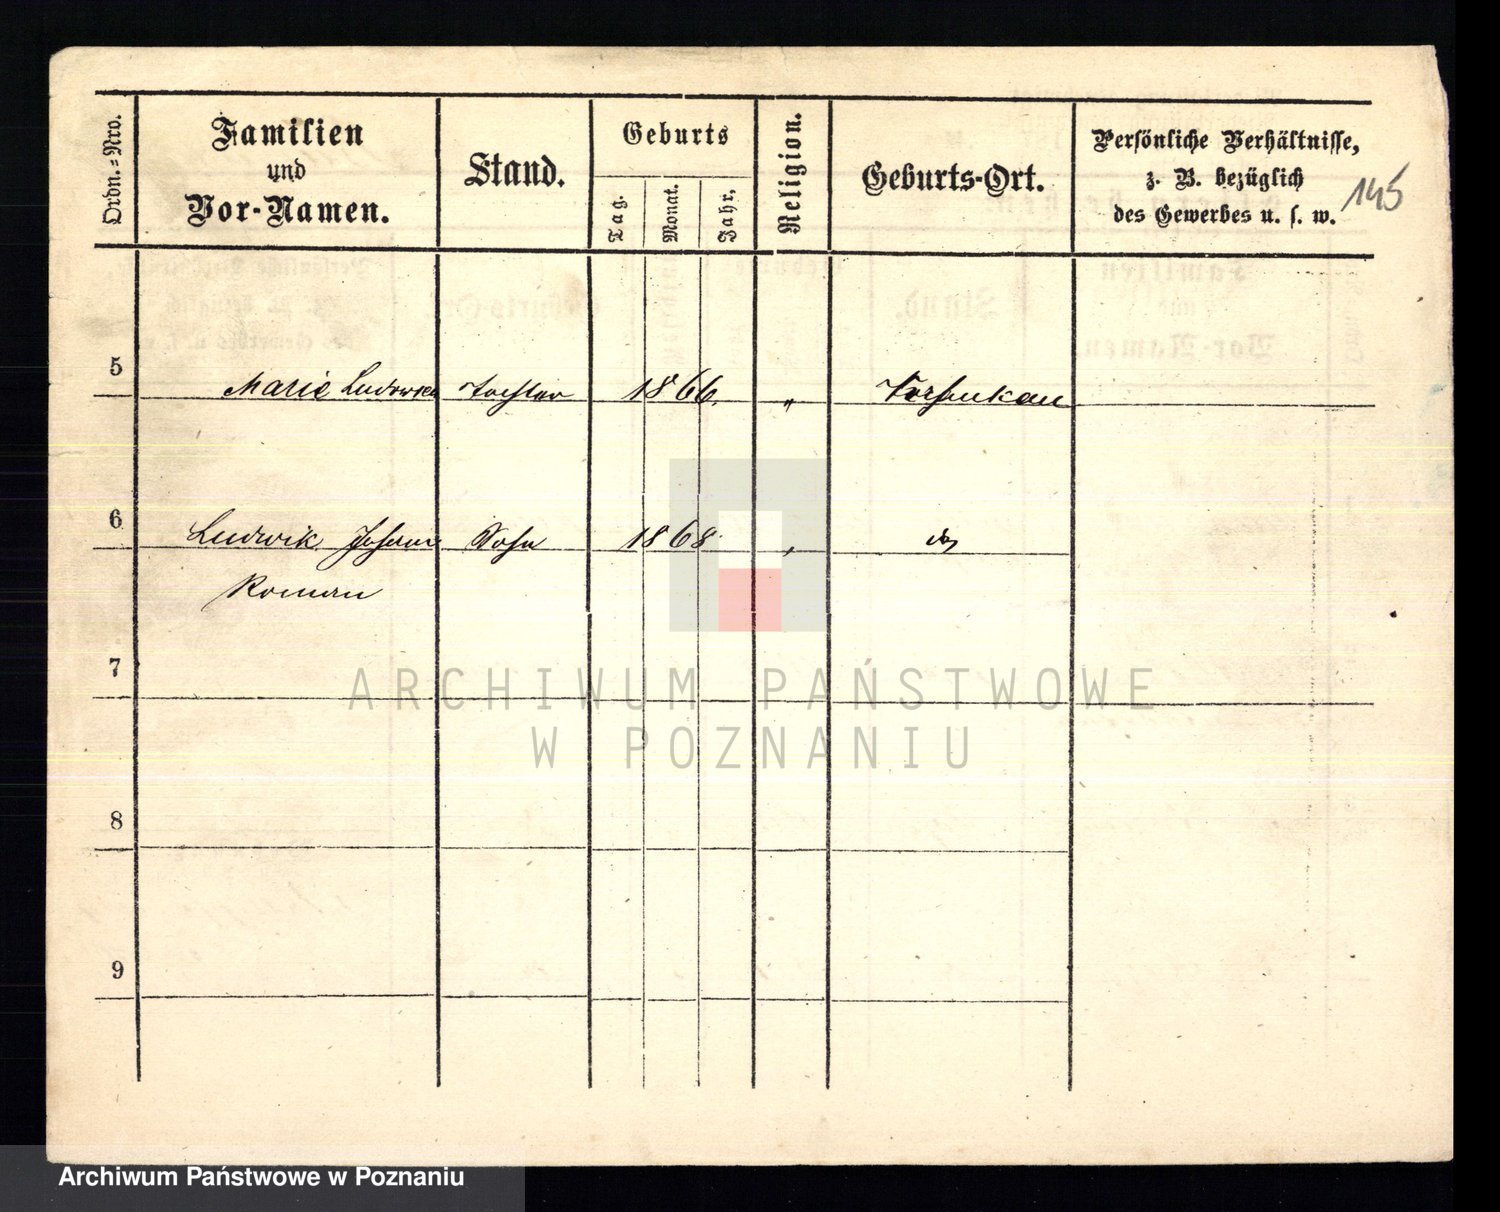 Ordn.=Nro.
Familien
und
Vor-Namen.
Stand.
Geburts
Tag.
Monat.
Jahr.
Religion.
Geburts-Ort.
Persönliche Verhältnisse,
z. B. bezüglich
des Gewerbes u. s. w.
145
5 Marie Ludowica Tochter 1866. "
6 Ludwik Sohn 1868 "
Roman
7
8
9
ARCHIWUM PAŃSTWOWE
W POZNANIU
Archiwum Państwowe w Poznaniu